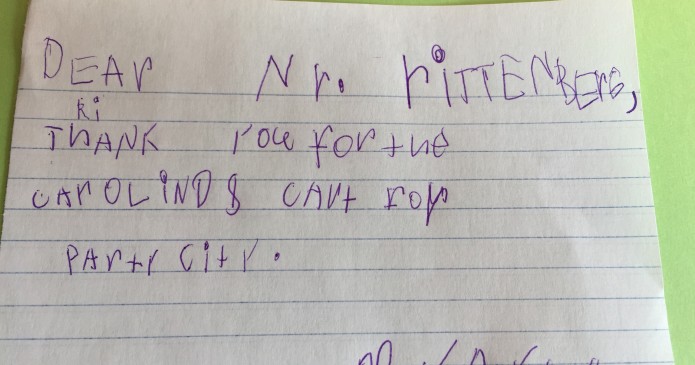 DEAr Nr. riTTENBErG,
Ki
THANK you for the
CArOLiND& CArt FOR
PArty City.